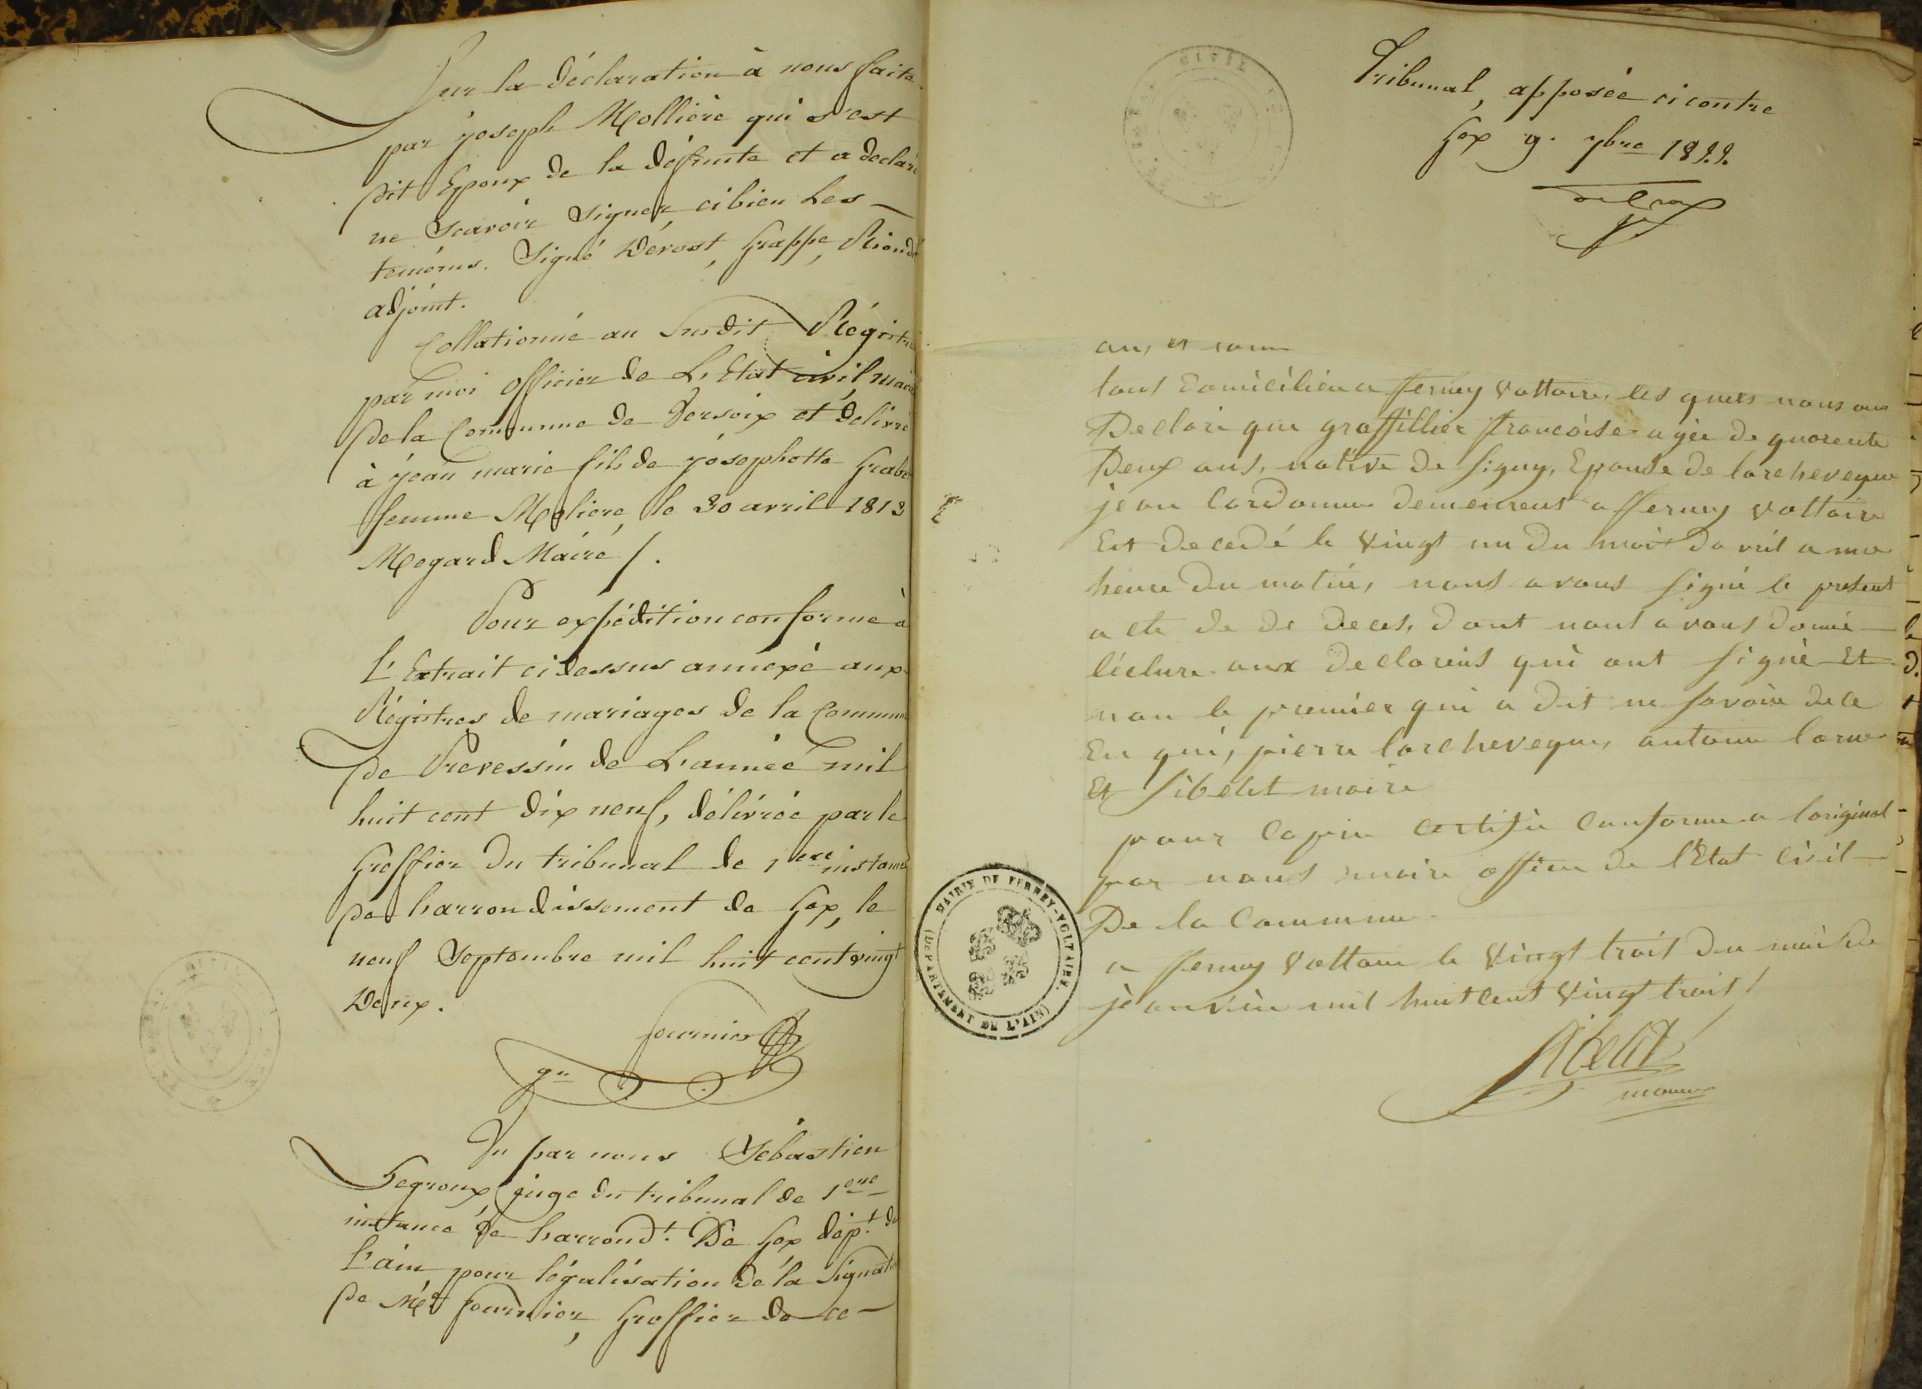 Sur la déclaration à nous faite
par joseph Mollière qui s'est
dit Epoux de la défunte et a declaré
ne scavoir signer cibien les
temoins. Signé Dérost, Grappe, Riondé
adjoint.
Collationné au susdit Régistre
par moi officier de L'Etat civil, maire
de la Commune de Versoix et délivré
à jean marie fils de josephotte Grabe
femme Moliere, le 30 avril 1813
Megard Mairé /.
Pour expédition conforme à
l'Extrait cidessus annexé aux
Régistres de mariages de la Commune
de Prevessin de L'année mil
huit cent dix neuf, délivrée par le
Greffier du tribunal de 1ere instance
de larrondissement de Gex, le
neuf Septembre mil huit cent vingt
Deux.
fournier
gr
Vu par nous Sébastien
Degroux, juge du tribunal de 1ere
instance de larrondt. De Gex dépt. de
L'ain pour légalisation de la signature
de Me fournier, Greffier de ce
Tribunal, apposée ci contre
Gex 9. 7bre 1822.
ans, et
tous Domiciliéà fferney Vottaire, les quels nous on
Declaré que graffillier francoise agée de quorente
Deux ans, native de signy, Epouse de larcheveque
jean Cordonnie demeurent a fferney Vottaire
Est decedé le Vingt un du mois davril a une
heure du matin, nous avons signé le present
acte de de deces, dont nous avons donné
lecture aux declarens qui ont signé Et
non le premier qui a dit ne savoir de ce
En qui, pierre larcheveque, antoine
Et sibelet maire
pour Copie certifié Conforme a loriginal
par nous maire offier de l'Etat Civil
De la Commune
a fferney Vottaire le Vingt trois du mois de
jeanvier mil huit cent Vingt trois /
Sibelet
maire
MAIRIE DE FERNEY-VOLTAIRE.
(DÉPARTEMENT DE L'AIN)